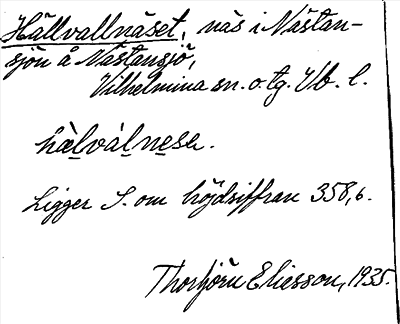 Hällvallnäset, näs i Nästan-
sjön å Nästansjö,
Vilhelmina sn. o. tg. Vb. l.
hàlvàlnesə.
Ligger S. om höjdsiffran 358,6.
Thorbjörn Eliesson, 1935.